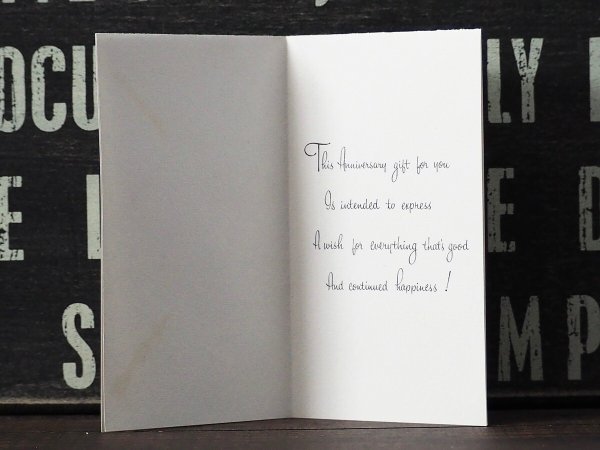 OCU
LY
E
E D
S
MP
This Anniversary gift for you
Is intended to express
A wish for everything that's good
And continued happiness!